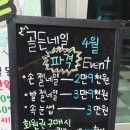 골드네일 4월
파격 Event
손 젤네일 2만9천원
발 젤네일 3만9천원
속눈썹 3만원
회원권구매시